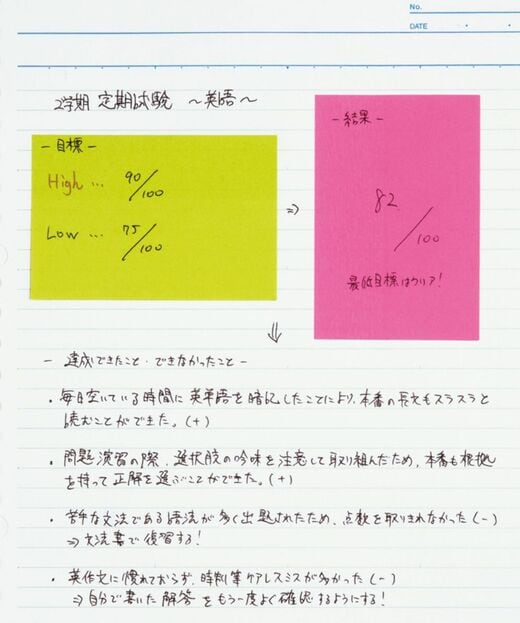 No.
DATE
2学期 定期試験 〜英語〜
- 目標 -
High … 90/100
Low … 75/100
⇒
- 結果 -
82/100
最低目標はクリア!
⇓
- 達成できたこと・できなかったこと -
・毎日空いている時間に英単語を暗記したことにより、本番の長文もスラスラと
読むことができた。(+)
・問題演習の際、選択肢の吟味を注意して取り組んだため、本番も根拠
を持って正解を選ぶことができた。(+)
・苦手な文法である語法が多く出題されたため、点数を取りきれなかった(-)
⇒文法書で復習する!
・英作文に慣れておらず、時制等ケアレスミスが多かった(-)
⇒自分で書いた解答をもう一度よく確認するようにする!